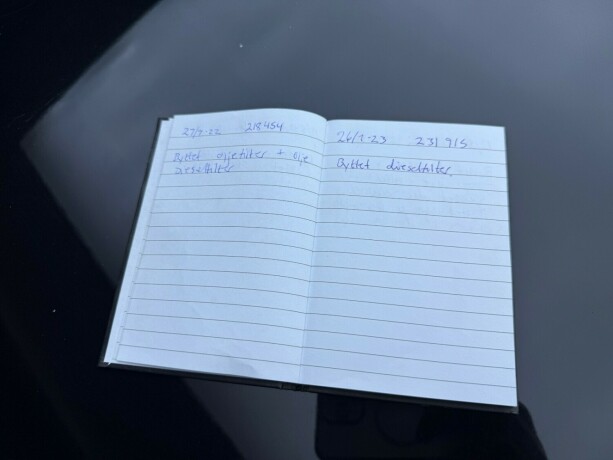 27/4-22 218454
Byttet oljefilter + olje
Dieselfilter
26/1-23 231915
Byttet dieselfilter.